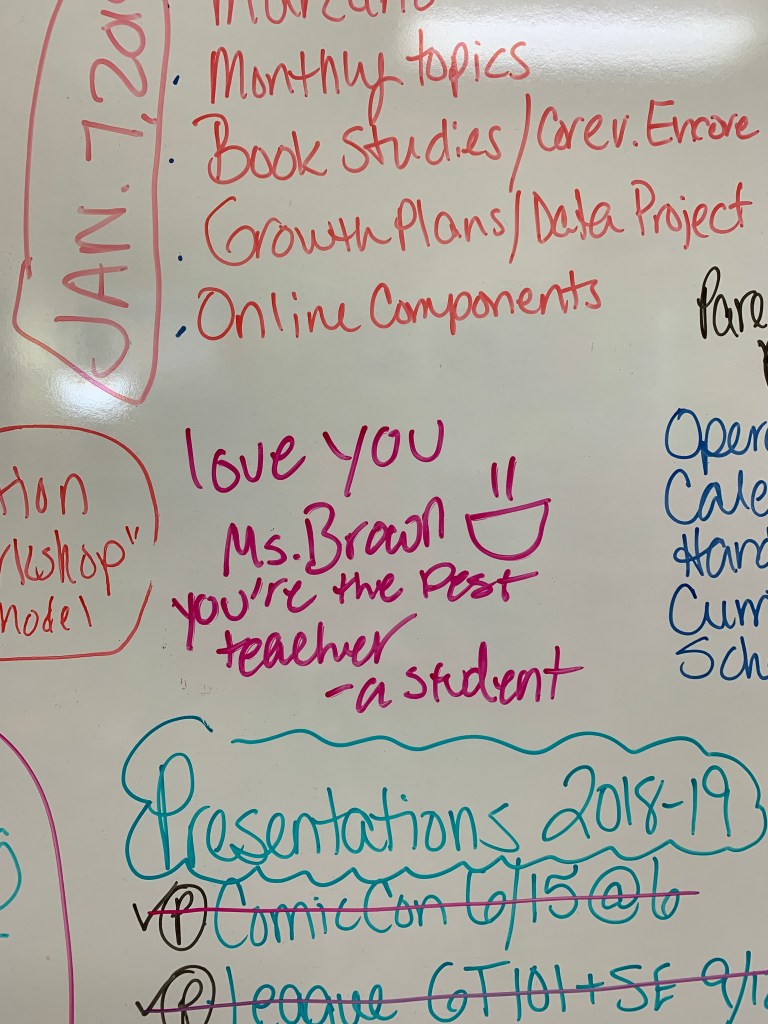 JAN. 7, 201
Marzano
Monthly topics
Book Studies/Core v. Encore
Growth Plans/Data Project
Online Components
Pare
love you
Ms. Brown
you're the best
teacher
-a student
tion
rkshop"
model
Opera
Cale
Hand
Curri
Sch
Presentations 2018-19
P ComicCon 6/15@6
P League GT101+SE 9/1